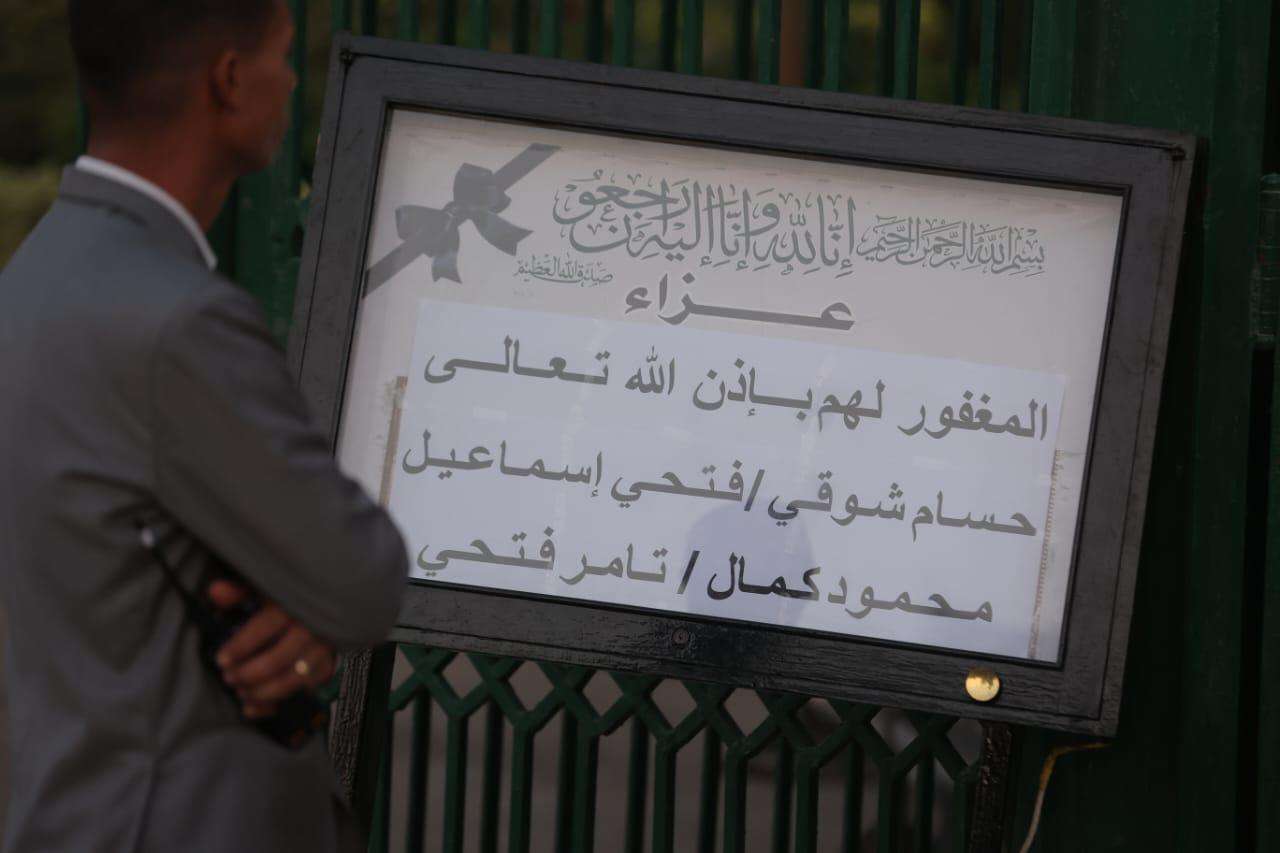 بسم الله الرحمن الرحيم
إنا لله وإنا إليه راجعون
صدق الله العظيم
عزاء
المغفور لهم بإذن الله تعالى
حسام شوقي / فتحي إسماعيل
محمود كمال / تامر فتحي